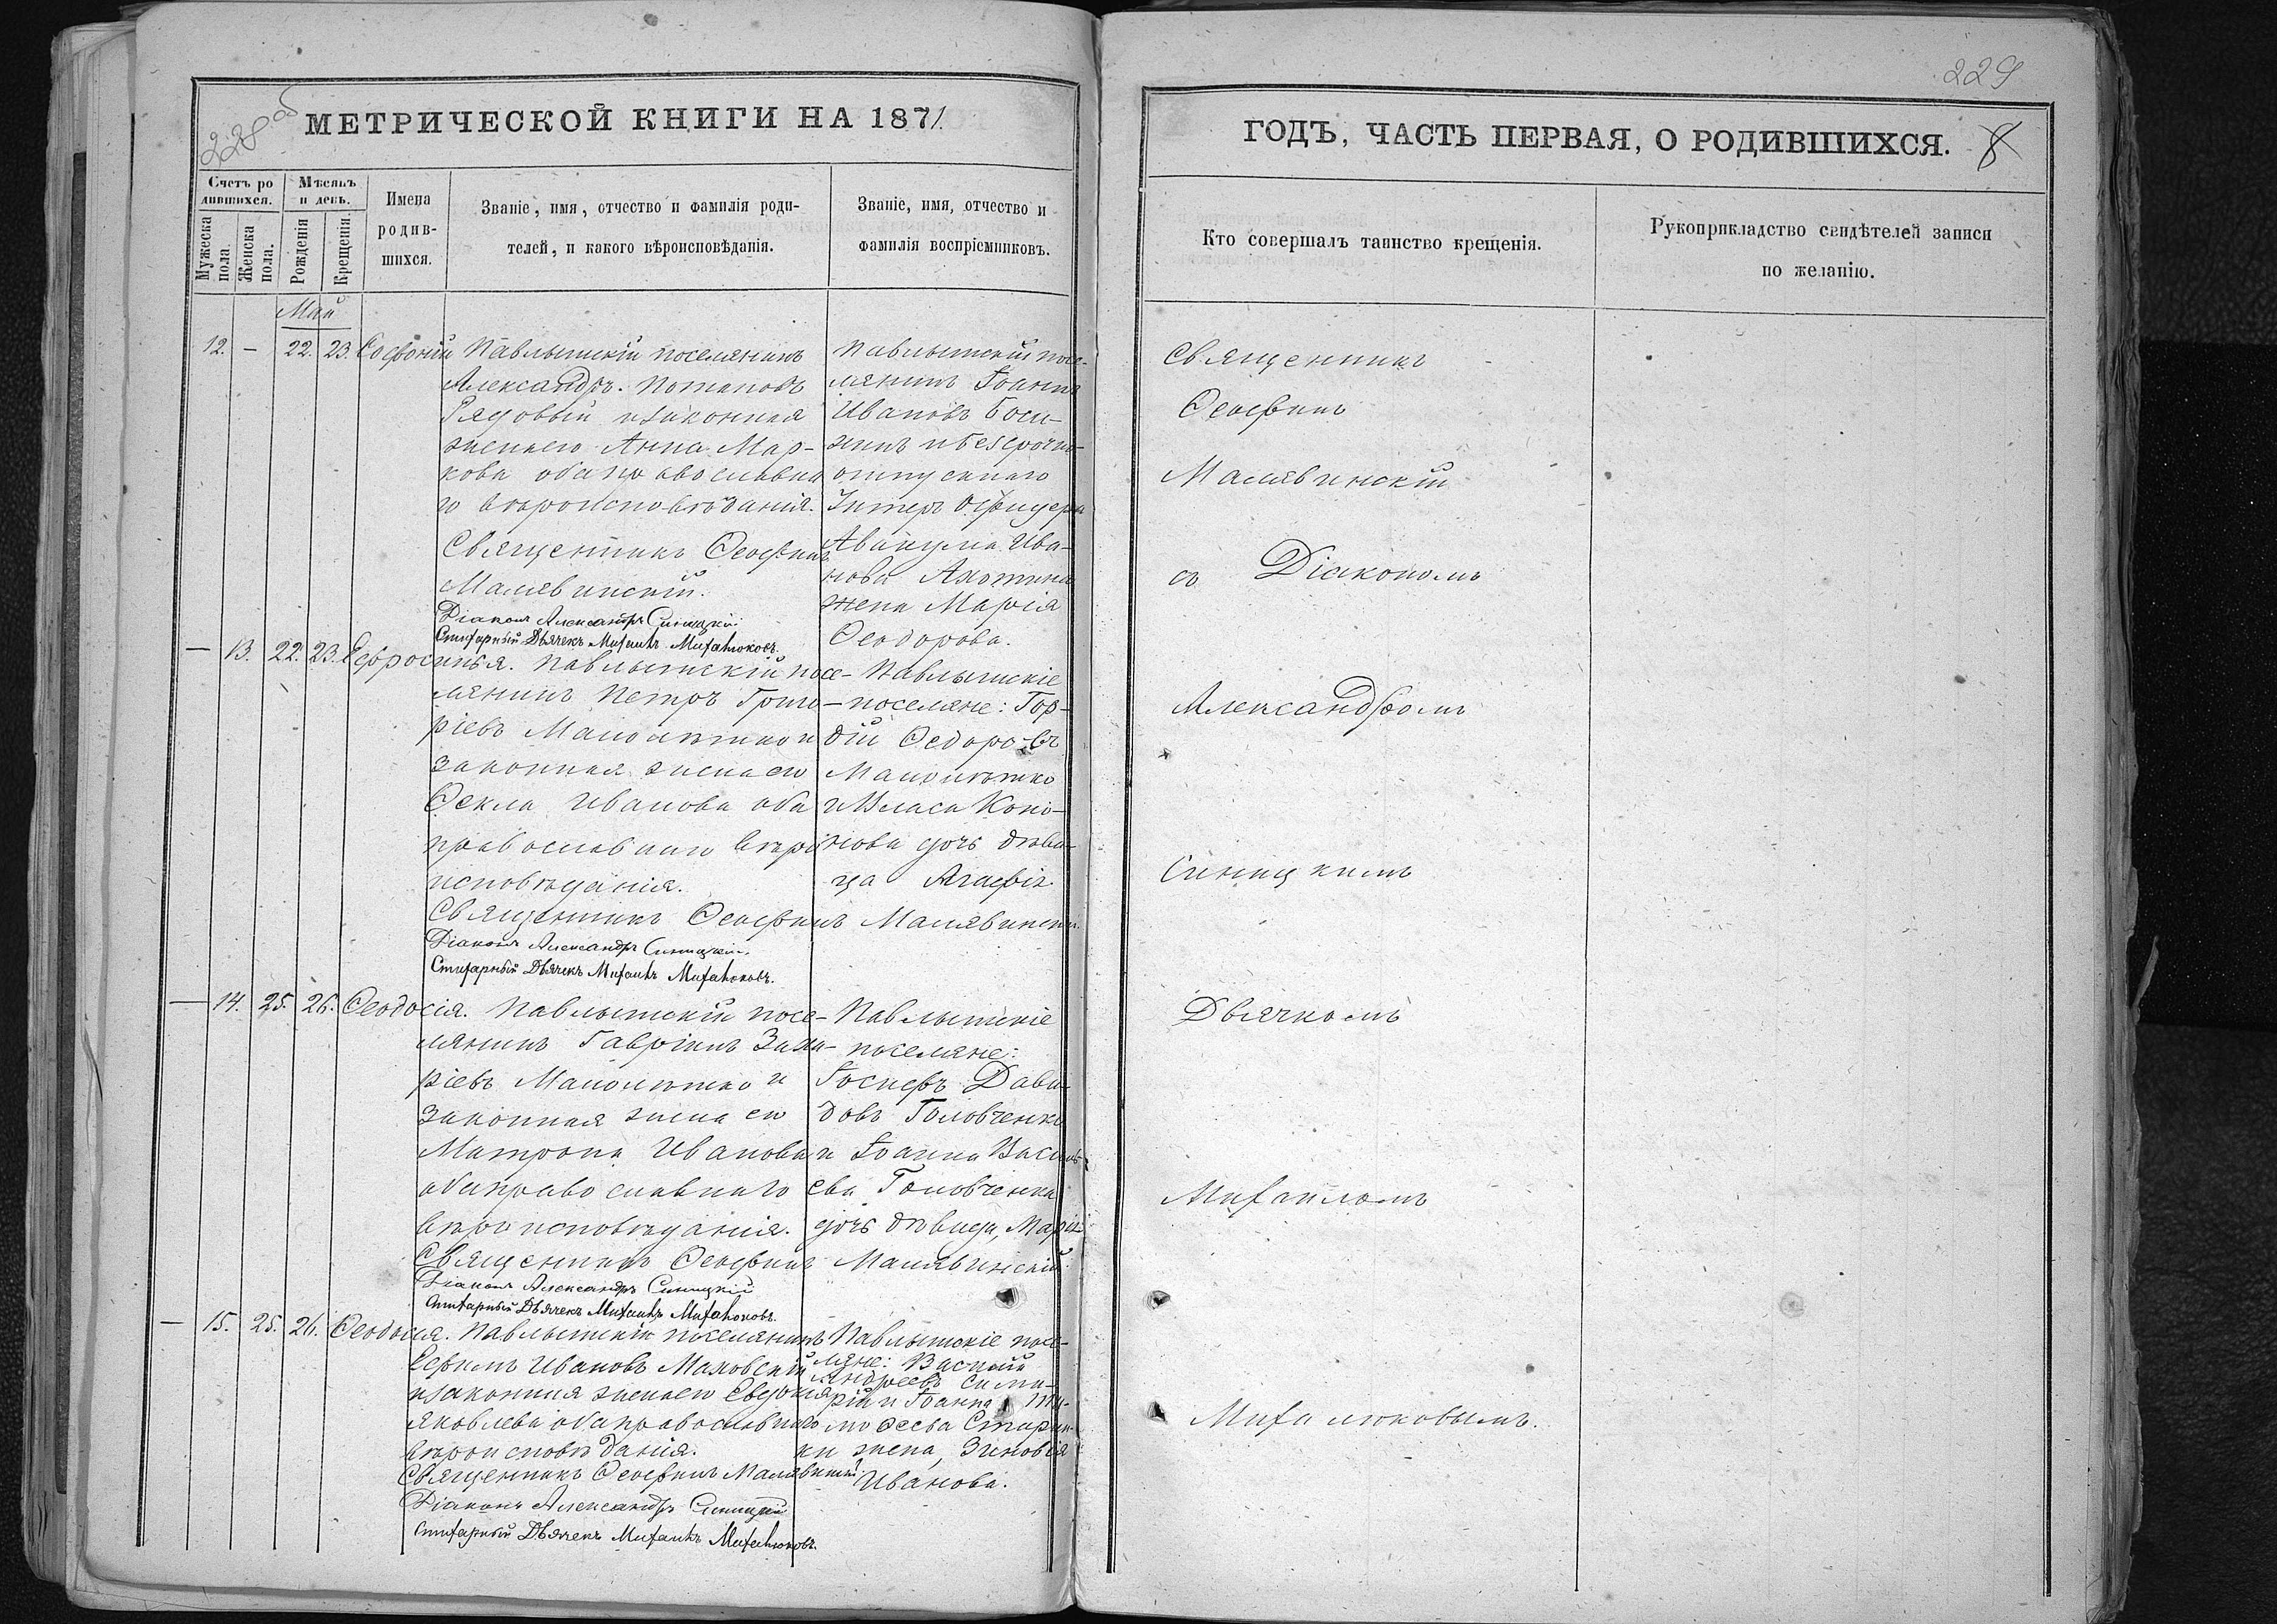 228 об
МЕТРИЧЕСКОЙ КНИГИ НА 1871.
Счетъ ро
дившихся.
Мѣсяцъ
и день.
Мужеска
пола.
Женска
пола.
Рожденія
Крещенія.
Имена
родив-
шихся.
Званіе, имя, отчество и фамилія роди-
телей, и какого вѣроисповѣданія.
Званіе, имя, отчество и
фамилія воспріемниковъ.
Май
12. — 22. 23. Софоній
Павлышскій поселянинъ
Александръ Потаповъ
Рядовый и законная
жена его Анна Мар-
кова оба православна
го вѣроисповѣданія.
Священникъ Ѳеофилъ
Малявинскій.
Діаконъ Александръ Синицкій
Стихарный Дьячекъ Михаилъ Михалюковъ.
Павлышскій посе-
лянинъ Іоаннъ
Ивановъ
и безсрочно-
отпускнаго
Унтеръ Офицера
Авакума Ива-
нова
жена Марія
Ѳеодорова.
— 13. 22. 23. Евфросинья.
Павлышскій посе-
лянинъ Петръ Григо-
ріевъ Малолѣтко и
законная жена его
Ѳекла Иванова оба
православнаго вѣро
исповѣданія.
Священникъ Ѳеофилъ Малявинскій.
Діаконъ Александръ Синицкій.
Стихарный Дьячекъ Михаилъ Михалюковъ.
Павлышскіе
поселяне: Гор-
дій Ѳедоровъ
Малолѣтко
и Власа Коно-
нова дочь дѣви-
ца Агафія
— 14. 25. 26. Ѳеодосія.
Павлышскій посе-
лянинъ Гавріилъ Заха-
ріевъ Малолѣтко и
законная жена его
Матрона Иванова
оба православнаго
вѣроисповѣданія.
Священникъ Ѳеофилъ Малявинскій.
Діаконъ Александръ Синицкій
Стихарный Дьячекъ Михаилъ Михалюковъ.
Павлышскіе
поселяне:
Іосифъ Дави-
довъ Головченко
и Іоанна Василь-
ева Головченка
дочь дѣвица, Марія
— 15. 25. 26. Ѳеодосія.
Павлышскій поселянинъ
Ефимъ Ивановъ Маховскій
и законная жена его Евдокія
Яковлева оба православнаго
вѣроисповѣданія.
Священникъ Ѳеофилъ Малявинскій
Діаконъ Александръ Синицкій
Стихарный Дьячекъ Михаилъ Михалюковъ.
Павлышскіе посе-
ляне: Василій
Андреевъ
и Іоанна Ти-
моѳеева
жена, Зиновія
Иванова.
229
ГОДЪ, ЧАСТЬ ПЕРВАЯ, О РОДИВШИХСЯ. 8
Кто совершалъ таинство крещенія.
Рукоприкладство свидѣтелей записи
по желанію.
Священникъ
Ѳеофилъ
Малявинскій
съ Діакономъ
Александромъ
Синицкимъ
Дьячкомъ
Михаиломъ
Михалюковымъ.